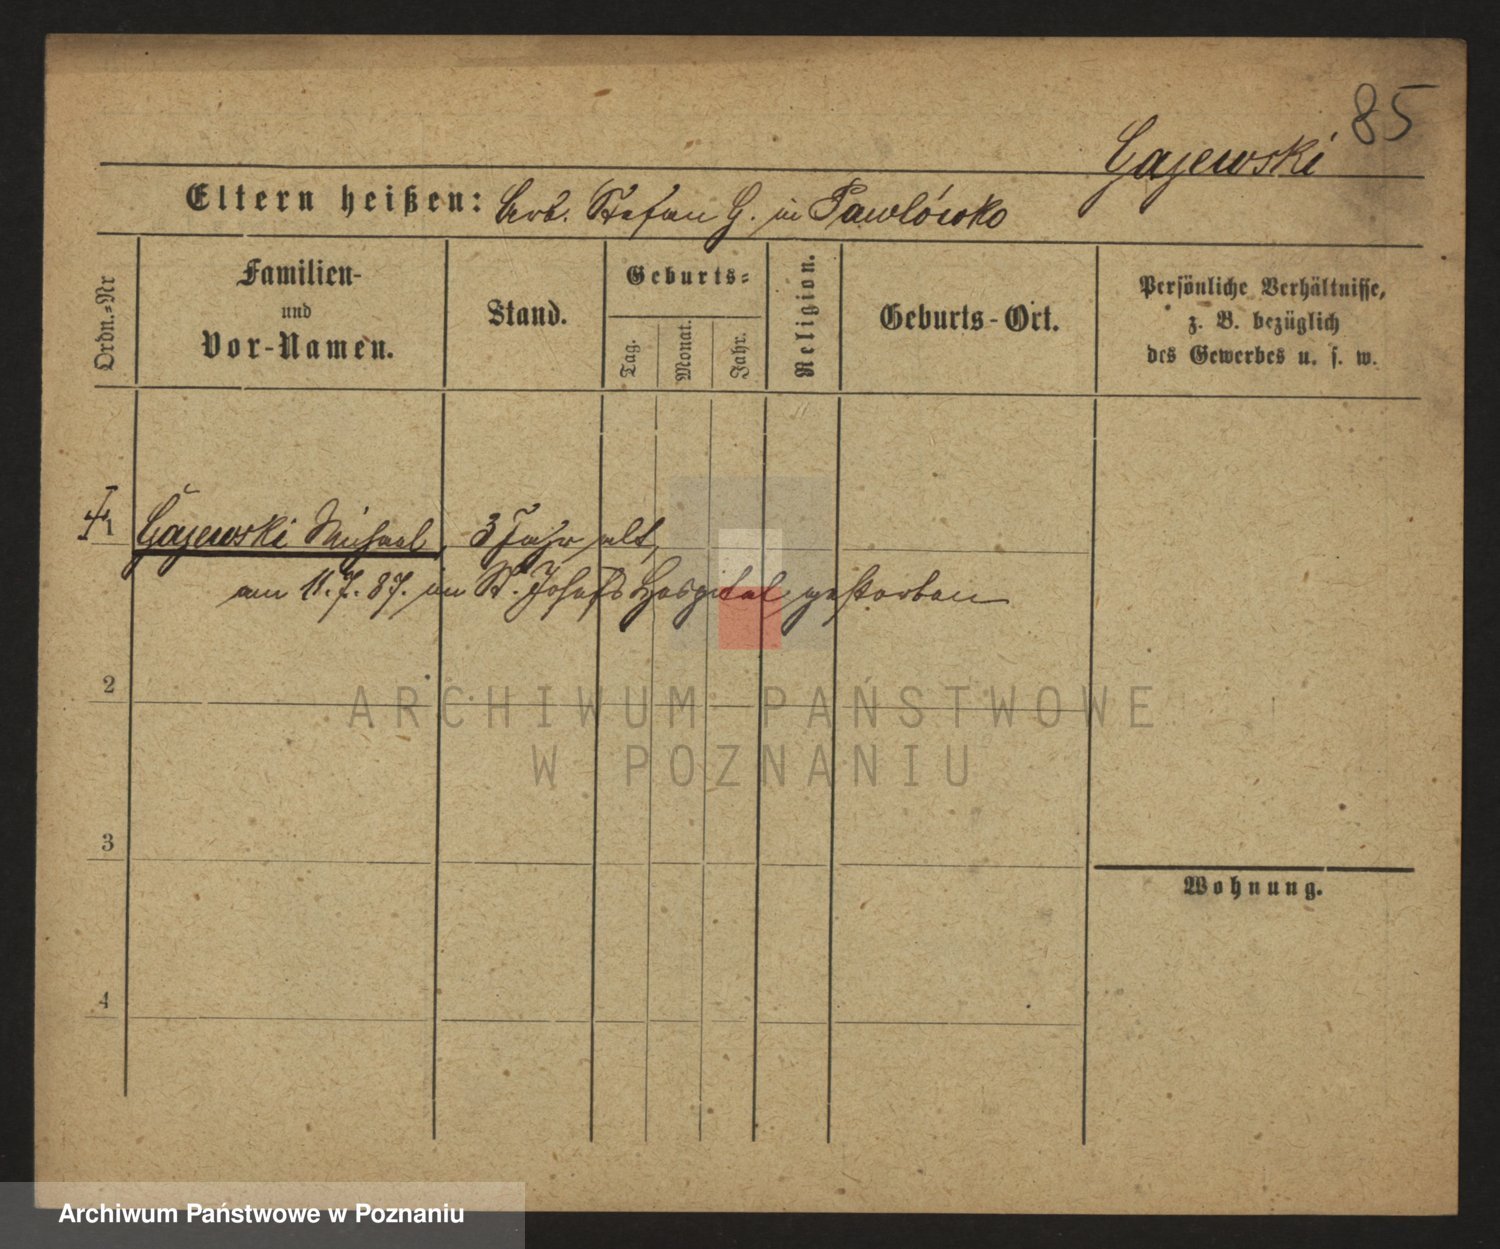 85
Gajewski
Eltern heißen: Arb. Stefan G. in Pawlówko
Ordn.-Nr
Familien-
und
Vor-Namen.
Stand.
Geburts-
Tag.
Monat.
Jahr.
Religion.
Geburts-Ort.
Persönliche Verhältnisse,
z. B. bezüglich
des Gewerbes u. s. w.
1 Gajewski Michael, 3 Jahr alt,
am 11.7.87. im St. Josefs Hospital gestorben
2
ARCHIWUM PAŃSTWOWE
W POZNANIU
3
Wohnung.
4
Archiwum Państwowe w Poznaniu